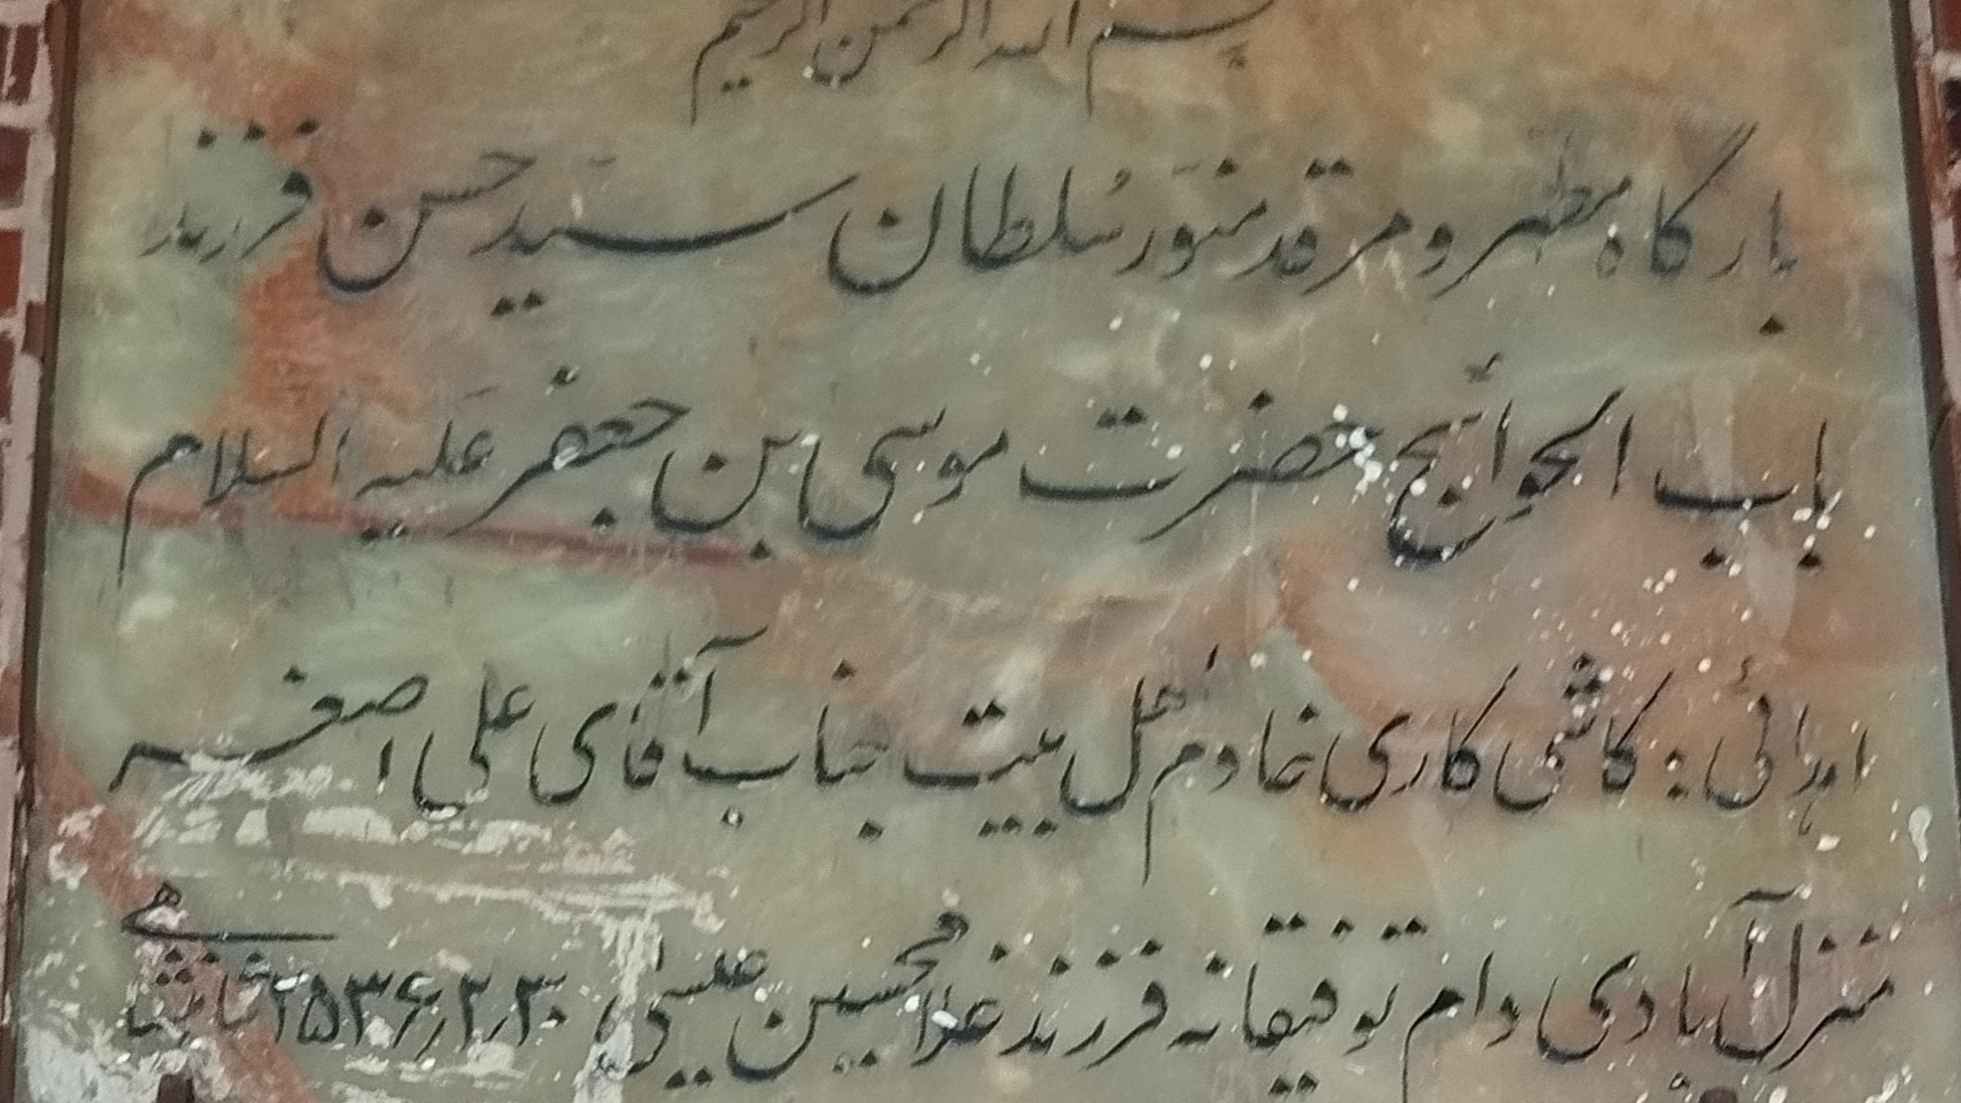 بسم الله الرحمن الرحیم
بارگاه مطهر و مرقد منوّر سُلطان سیّد حسن فرزند
باب الحوائج حضرت موسی بن جعفر عَلیه السَلام
اهدائی : کاشی کاری خادم اهل بیت جناب آقای علی اصغر
منزل آبادی دام توفیقاته فرزند غلامحسین عیسی ۲۵۳۶٫۲٫۳۰ شاهنشاهی